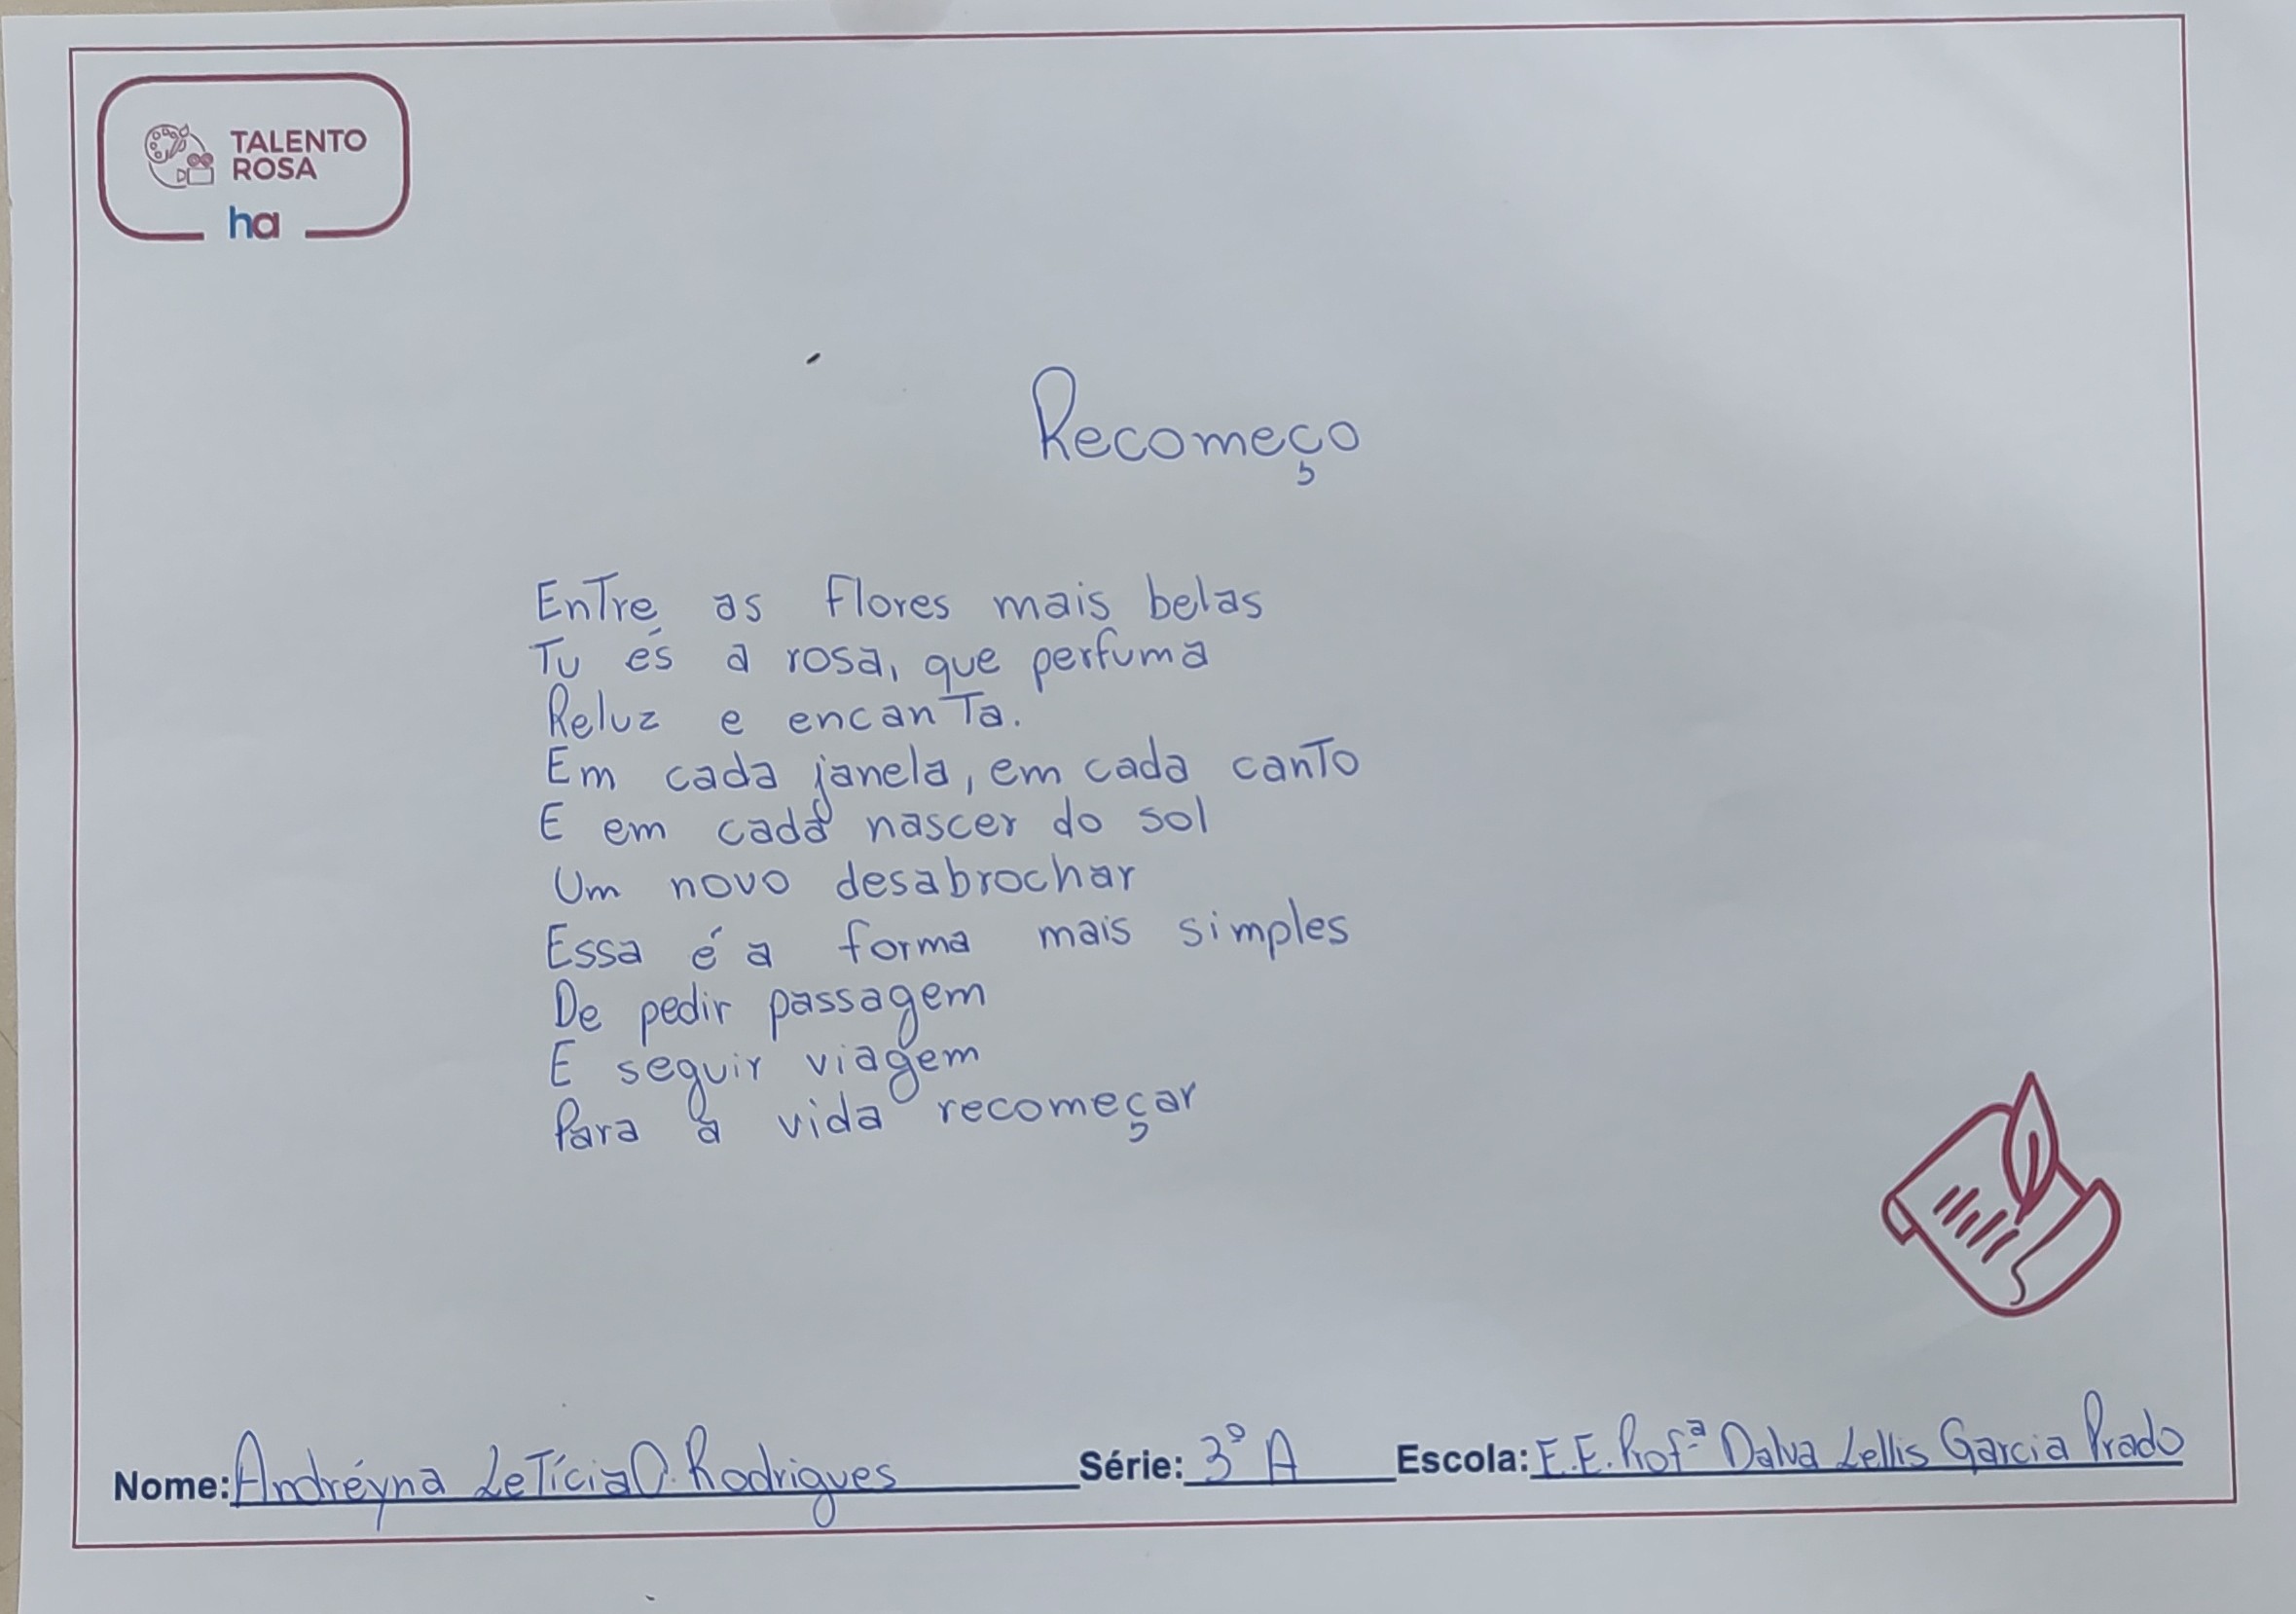 TALENTO
ROSA
ha
Recomeço
Entre as flores mais belas
Tu és a rosa, que perfuma
Reluz e encanta.
Em cada janela, em cada canto
E em cada nascer do sol
Um novo desabrochar
Essa é a forma mais simples
De pedir passagem
E seguir viagem
Para a vida recomeçar
Nome: Andréyna Letícia O. Rodrigues Série: 3º A Escola: E.E. Profª Dalva Lellis Garcia Prado